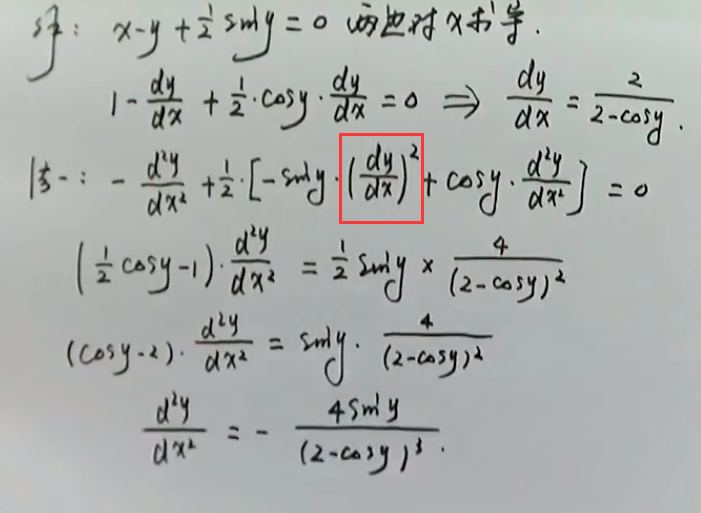 解: x-y+½siny=0 两边对x求导.
1-dy/dx+½·cosy·dy/dx=0 ⇒ dy/dx=2/(2-cosy).
法一: -d²y/dx²+½·[-siny·(dy/dx)²+cosy·d²y/dx²]=0
(½cosy-1)·d²y/dx²=½siny×4/(2-cosy)²
(cosy-2)·d²y/dx²=siny·4/(2-cosy)²
d²y/dx²=-4siny/(2-cosy)³.